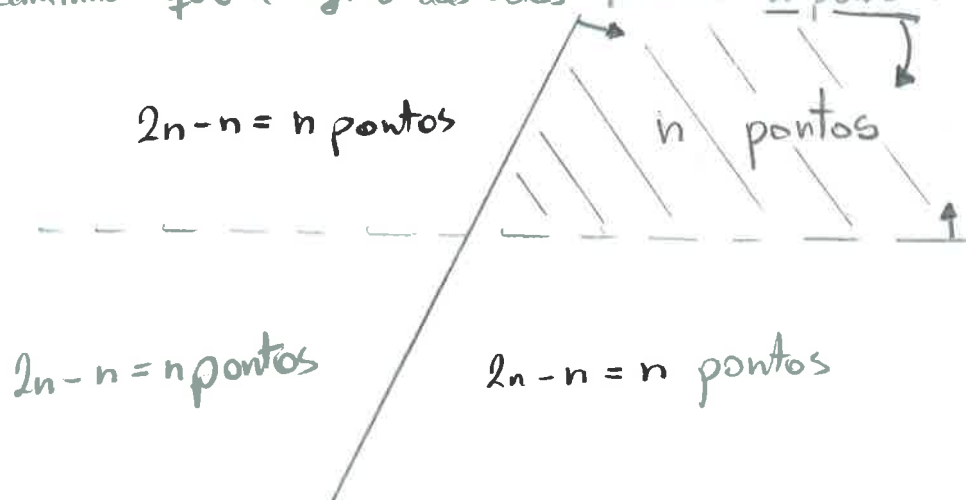 das
2n-n = n pontos
n pontos
2n-n = n pontos
2n-n = n pontos